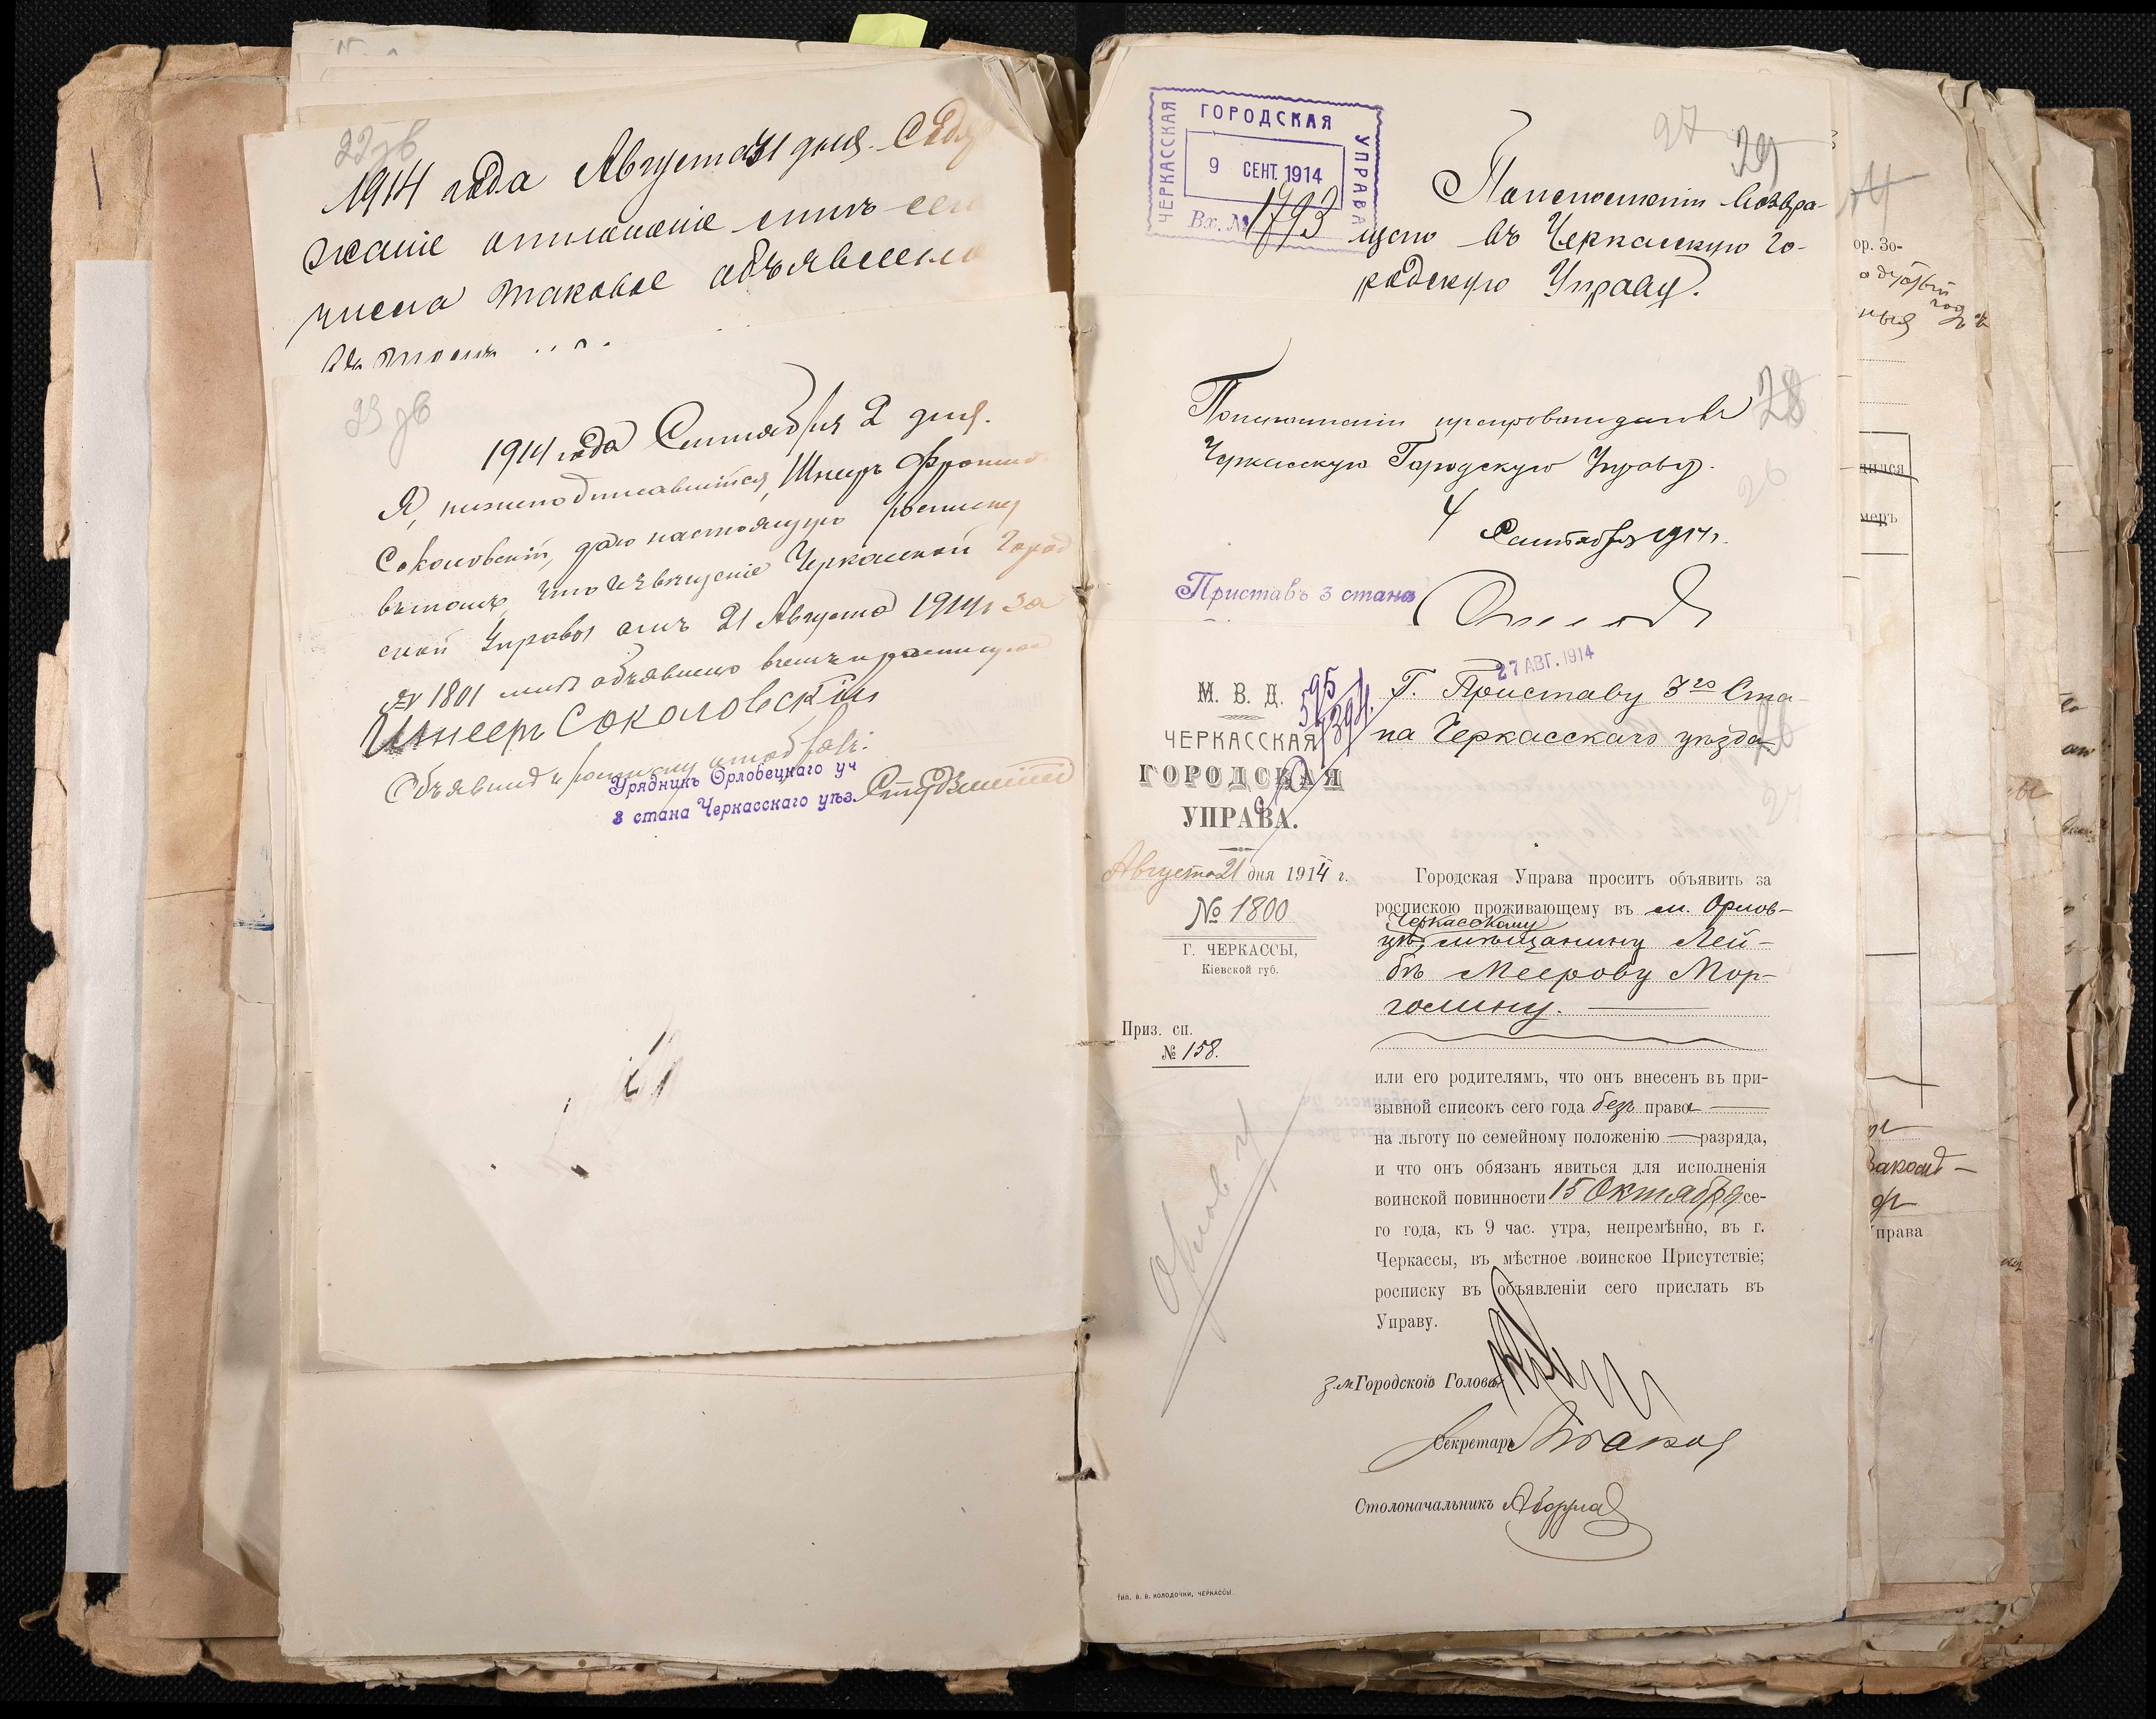 22 об
1914 года Августа 31 дня. Содер
жаніе отношенія отъ сего
числа таковое объявлено
въ томъ
23 об
1914 года Сентября 2 дня.
Я, нижеподписавшійся, Шнееръ
Соколовскій, даю настоящую росписку
въ томъ, что извѣщеніе Черкасской Город
ской Управы отъ 21 Августа 1914 г. за
№ 1801 мнѣ объявлено въ чемъ и росписуюсь
Шнееръ Соколовскій
Объявилъ и росписку отобралъ.
Урядникъ Орловецкаго уч
3 стана Черкасскаго уѣз.
ЧЕРКАССКАЯ
ГОРОДСКАЯ
УПРАВА
9 СЕНТ. 1914
Вх. № 1793
27 29
По исполненіи возвра-
щено въ Черкасскую Го-
родскую Управу.
28
По исполненіи препровождается въ
Черкасскую Городскую Управу.
26
4 Сентября 1914 г.
Приставъ 3 стана
27 АВГ. 1914
М. В. Д.
ЧЕРКАССКАЯ
ГОРОДСКАЯ
УПРАВА.
Августа 21 дня 1914 г.
№ 1800
Г. ЧЕРКАССЫ,
Кіевской губ.
Приз. сп.
№ 158.
Г. Приставу 3го Ста-
на Черкасскаго уѣзда
Городская Управа проситъ объявить за
роспискою проживающему въ м. Орлов-
Черкасскому
цѣ, мѣщанину Лей-
бѣ Меерову Мор-
голину.
или его родителямъ, что онъ внесенъ въ при-
зывной списокъ сего года безъ права
на льготу по семейному положенію — разряда,
и что онъ обязанъ явиться для исполненія
воинской повинности 15 Октября се-
го года, къ 9 час. утра, непремѣнно, въ г.
Черкассы, въ мѣстное воинское Присутствіе;
росписку въ объявленіи сего прислать въ
Управу.
З. м. Городского Головы
Секретарь
Столоначальникъ
Тип. В. В. КОЛОДОЧКИ, ЧЕРКАССЫ
ор. Зо-
ныя
дился
меръ
права